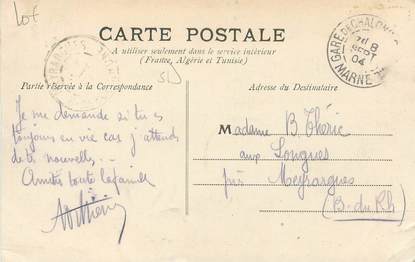 Lot
CARTE POSTALE
A utiliser seulement dans le service intérieur
(France, Algérie et Tunisie)
Partie réservée à la Correspondance
Adresse du Destinataire
GARE DE CHALONS
8
SEPT
04
MARNE
Je me demande si tu es
toujours en vie car j'attends
de tes nouvelles
Amitiés toute la famille
Madame B. Théric
aux Longues
près Meyrargues
(B. du Rh)